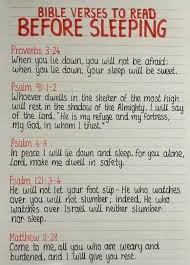 BIBLE VERSES TO READ
BEFORE SLEEPING
Proverbs 3:24
When you lie down, you will not be afraid:
when you lie down, your sleep will be sweet.
Psalm 91:1-2
Whoever dwells in the shelter of the most high
will rest in the shadow of the Almighty. I will say
of the Lord, "He is my refuge and my fortress,
my God, in whom I trust."
Psalm 4:8
In peace I will lie down and sleep, for you alone,
Lord, make me dwell in safety.
Psalm 121:3-4
He will not let your foot slip - He who watches
over you will not slumber; indeed, He who
watches over Israel will neither slumber
nor sleep.
Matthew 11:28
Come to me, all you who are weary and
burdened, and I will give you rest.